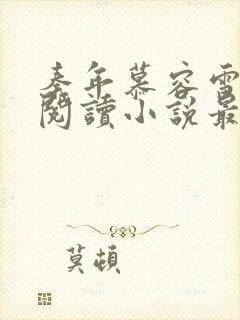 秦年慕容雪
閱讀小說最
莫頓